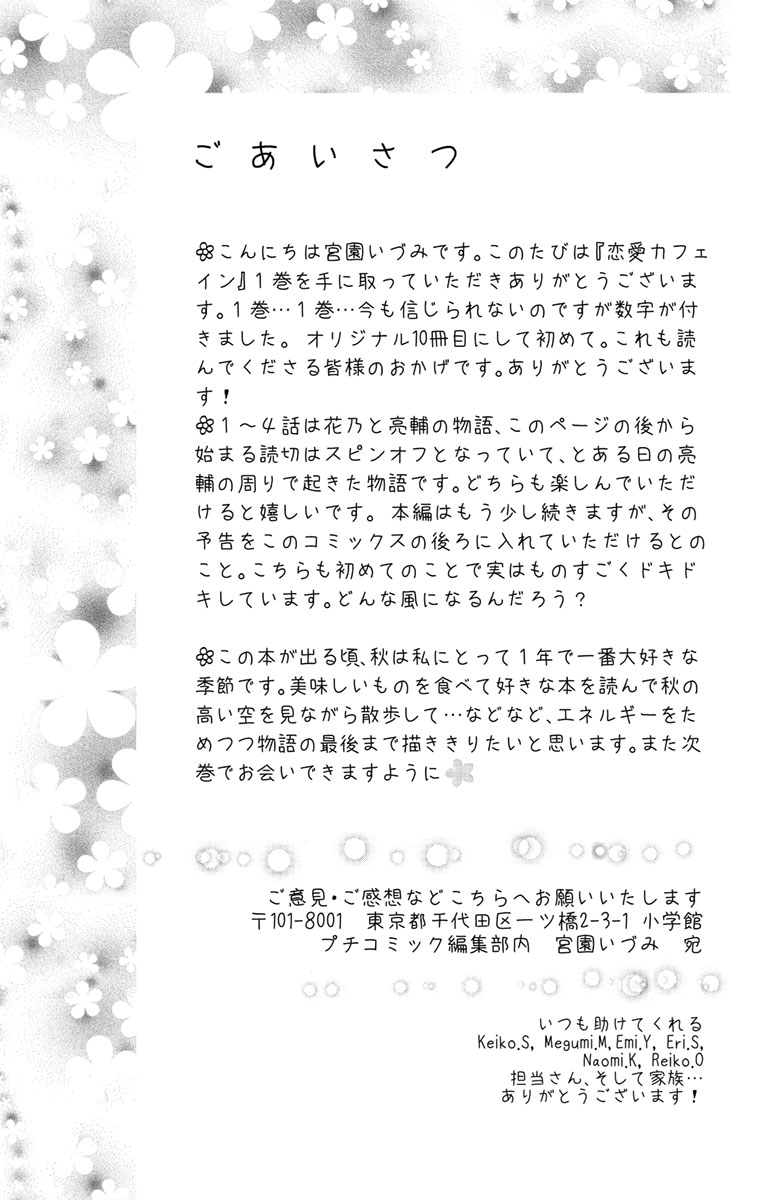 ごあいさつ
❀こんにちは宮園いづみです。このたびは『恋愛カフェ
イン』1巻を手に取っていただきありがとうございま
す。1巻…1巻…今も信じられないのですが数字が付
きました。 オリジナル10冊目にして初めて。これも読
んでくださる皆様のおかげです。ありがとうございま
す！
❀1～4話は花乃と亮輔の物語、このページの後から
始まる読切はスピンオフとなっていて、とある日の亮
輔の周りで起きた物語です。どちらも楽しんでいただ
けると嬉しいです。 本編はもう少し続きますが、その
予告をこのコミックスの後ろに入れていただけるとの
こと。こちらも初めてのことで実はものすごくドキド
キしています。どんな風になるんだろう？
❀この本が出る頃、秋は私にとって1年で一番大好きな
季節です。美味しいものを食べて好きな本を読んで秋の
高い空を見ながら散歩して…などなど、エネルギーをた
めつつ物語の最後まで描ききりたいと思います。また次
巻でお会いできますように
ご意見・ご感想などこちらへお願いいたします
〒101-8001　東京都千代田区一ツ橋2-3-1 小学館
プチコミック編集部内　宮園いづみ　宛
いつも助けてくれる
Keiko.S, Megumi.M,Emi.Y, Eri.S,
Naomi.K, Reiko.O
担当さん、そして家族…
ありがとうございます！